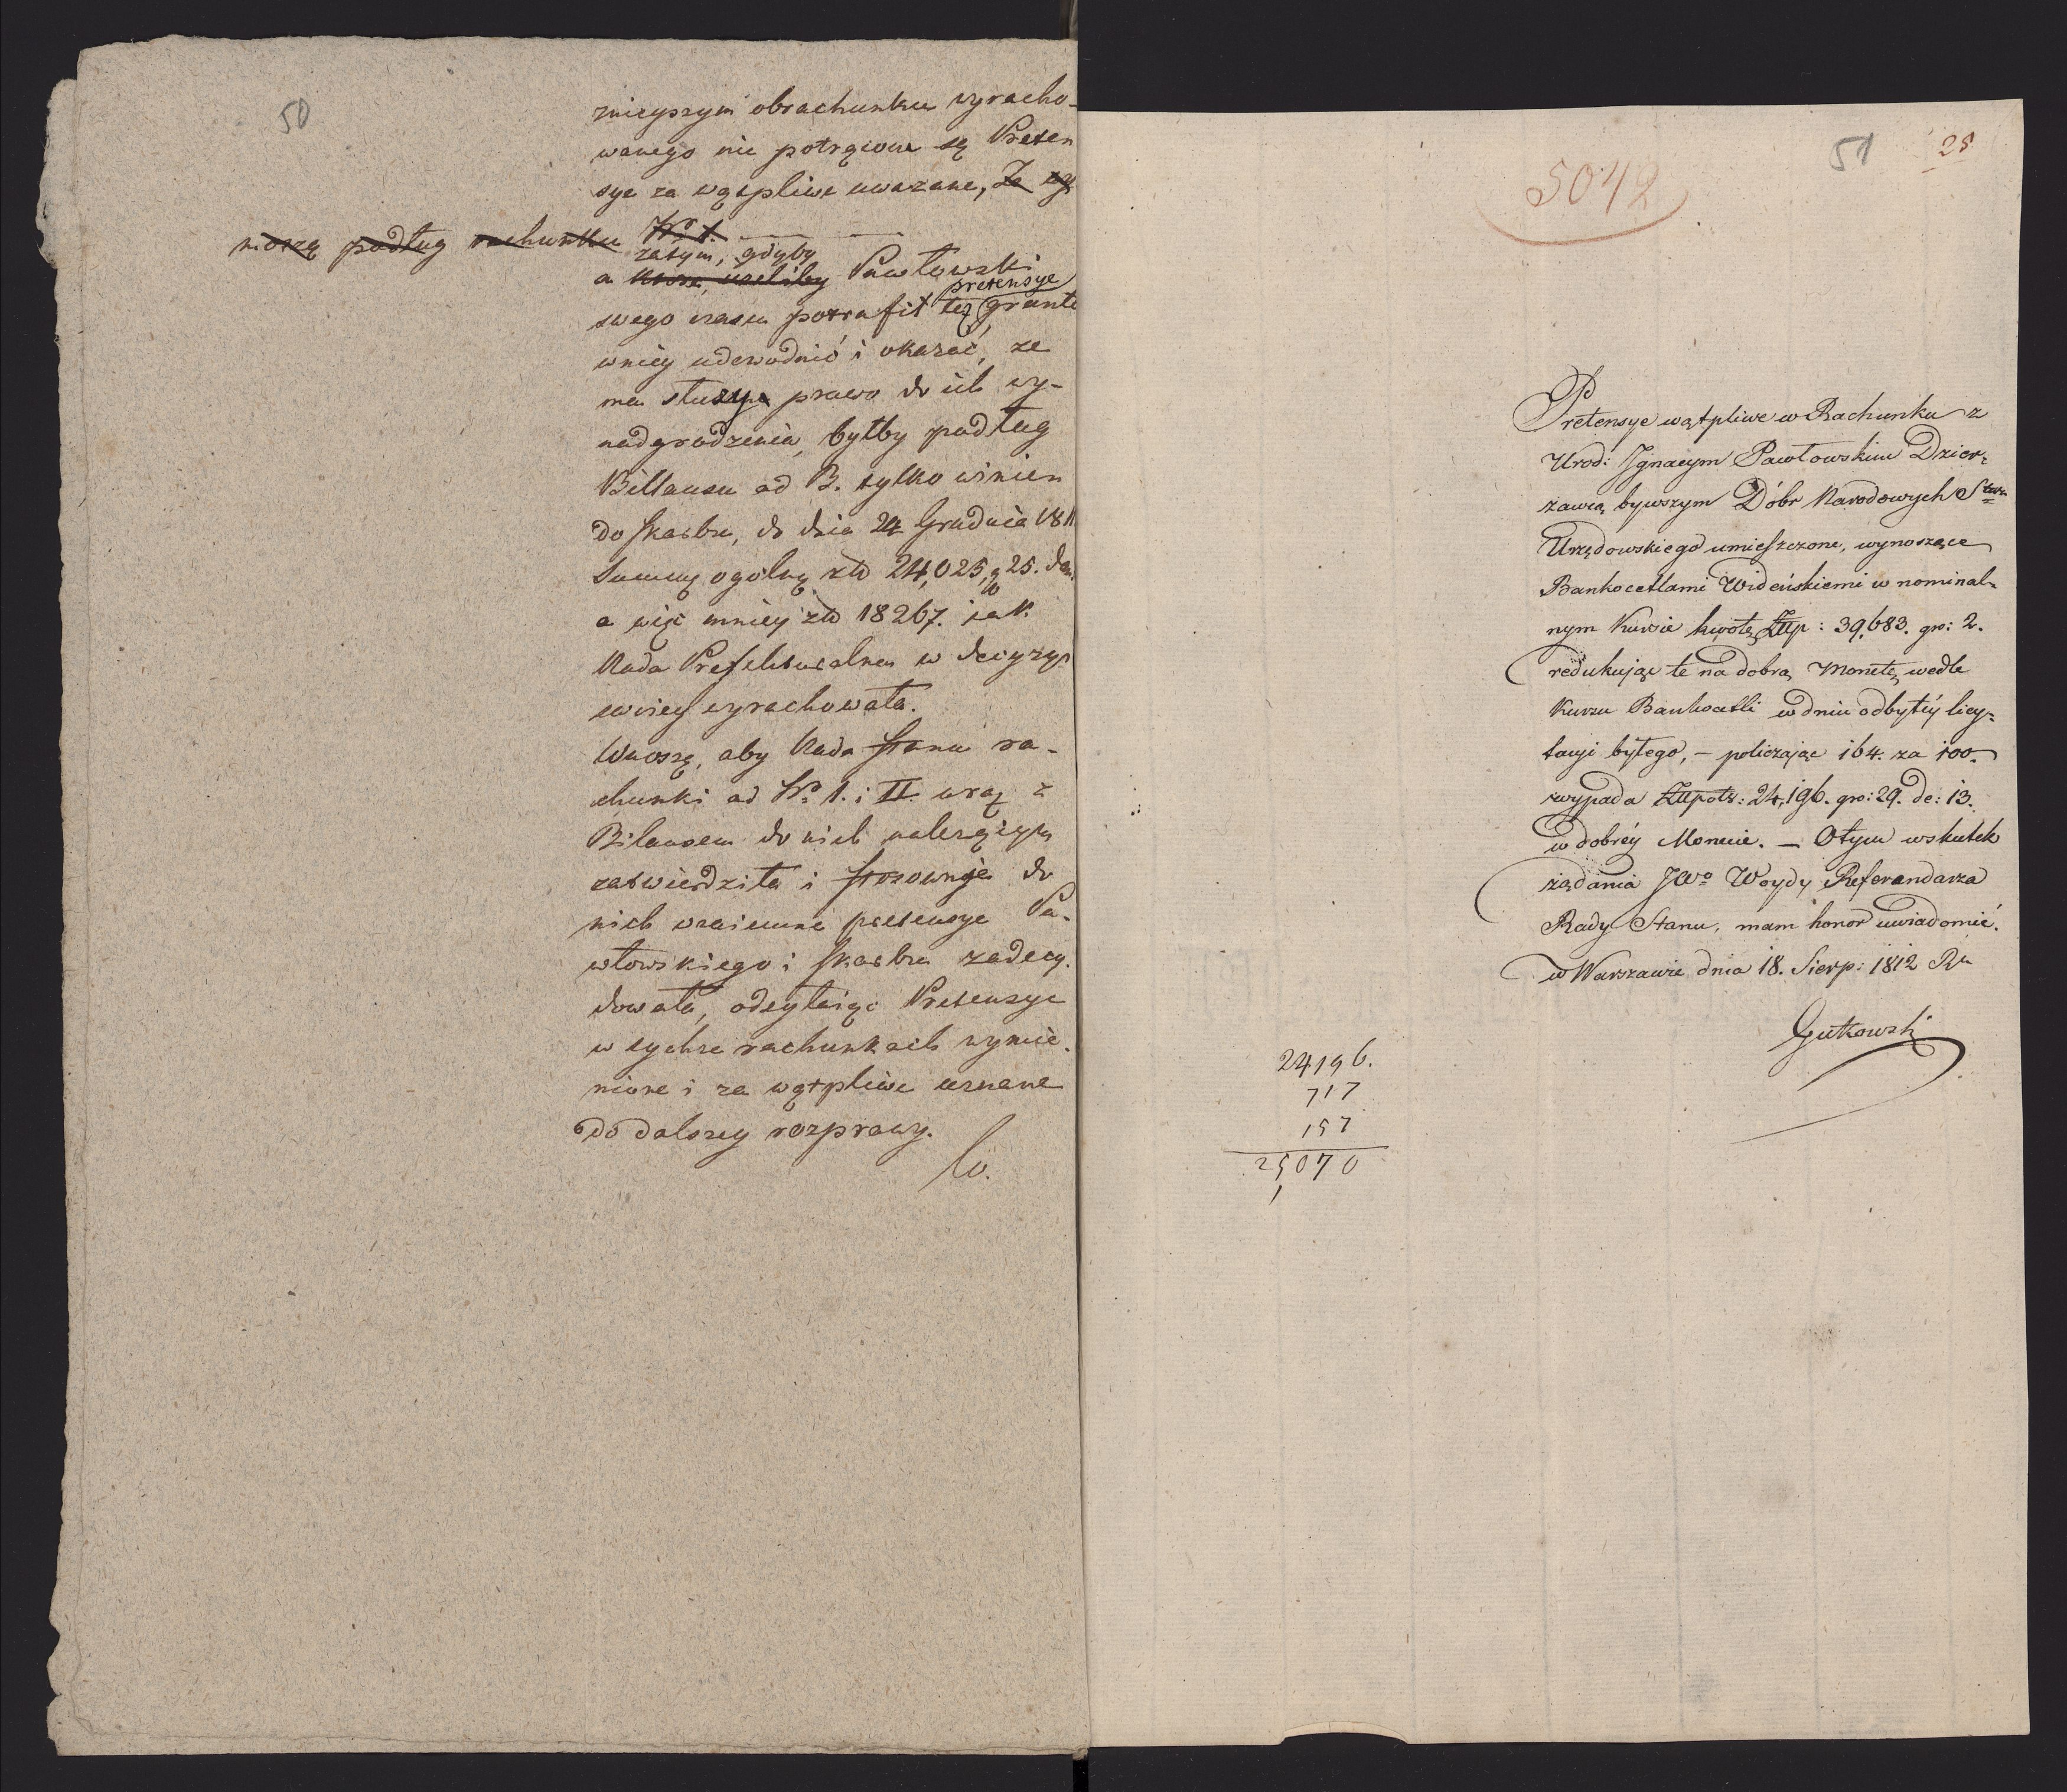 50
nieyszym obrachunku wyracho-
wanego nie potrącone są Preten
sye za wątpliwe uważane, Ze wy
noszą podług rachunku No 1.
zatym, gdyby
a Pawłowski
pretensye
swego czasu potrafił też grunto
wniey udowodnić i okazać, że
ma służyć prawo do ich wy-
nadgrodzenia, byłby podług
Billansu ad B. tylko winien
do skarbu, do dnia 24 Grudnia 1811
Summę ogólną złt 24,025, g 25.
a więc mniey złt 18267. jak
Rada Prefekturalna w decyzyi
swoiey wyrachowała.
Wnoszę, aby Rada Stanu ra-
chunki ad No 1. i II. wraz z
Bilansem do nich należącym
zatwierdziła i stosownie do
nich wzaiemne pretensye Pa-
włowskiego i skarbu zadecy-
dowała, odsyłaiąc Pretensye
w tychże rachunkach wymie-
nione i za wątpliwe uznane
do dalszey rozprawy.
51 25
5042
Pretensye wątpliwe w Rachunku z
Urod: Ignacym Pawłowskim Dzier-
żawcą bywszym Dóbr Narodowych Stwa
Urzędowskiego umieszczone, wynoszące
Bankocetlami Widenskiemi w nominal-
nym Kursie kwotę Złlp: 39,683. gr: 2.
redukując te na dobrą Monetę wedle
Kursu Bankocetli w dniu odbytéy licy-
tacyi byłego, - policzając 164. za 100.
wypada Złlpols: 24,196. gro: 29. de: 13.
w dobréy Monecie. - O tym w skutek
żądania JWo Woydy Referendarza
Rady Stanu, mam honor uwiadomić.
w Warszawie dnia 18. Sierp: 1812 Ru
Gutkowski
24196.
717
157
25070